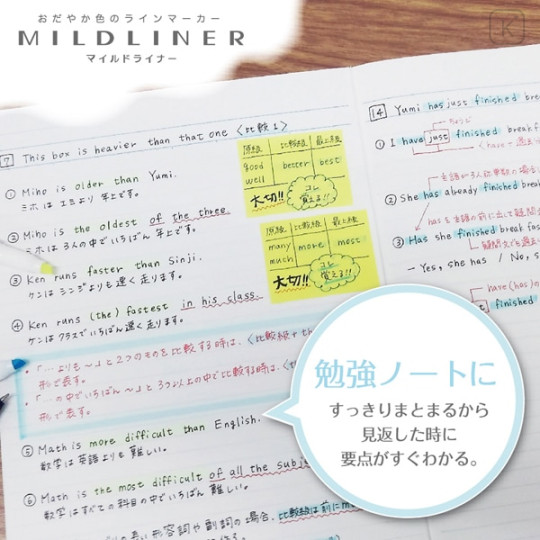 おだやか色のラインマーカー
MILDLINER
マイルドライナー
K
7 This box is heavier than that one 〈比較1〉
① Miho is older than Yumi.
ミホはユミより年上です。
② Miho is the oldest of the three.
ミホは3人の中でいちばん年上です。
③ Ken runs faster than Sinji.
ケンはシンジよりも速く走ります。
④ Ken runs (the) fastest in his class.
ケンはクラスでいちばん速く走ります。
・「…よりも～」と2つのものを比較する時は、〈比較級+th
形で表す。
・「…の中でいちばん～」と3つ以上の中で比較する時は、〈th
形で表す。
⑤ Math is more difficult than English.
数学は英語よりも難しい。
⑥ Math is the most difficult of all the subj
数学はすべての科目の中でいちばん難しい。
の長い形容詞や副詞の場合、比較級は前にm
原級 比較級 最上級
good better best
well
大切!! コレ覚える!!
原級 比較級 最上級
many more most
much
大切!! コレ覚える!!
14 Yumi has just finished brea
① I have just finished breakf
〈have+過去
② She has already finished brea
主語が3人称単数の場合
③ Has she finished break
- Yes, she has / No, s
has(have)
finished
勉強ノートに
すっきりまとまるから
見返した時に
要点がすぐわかる。